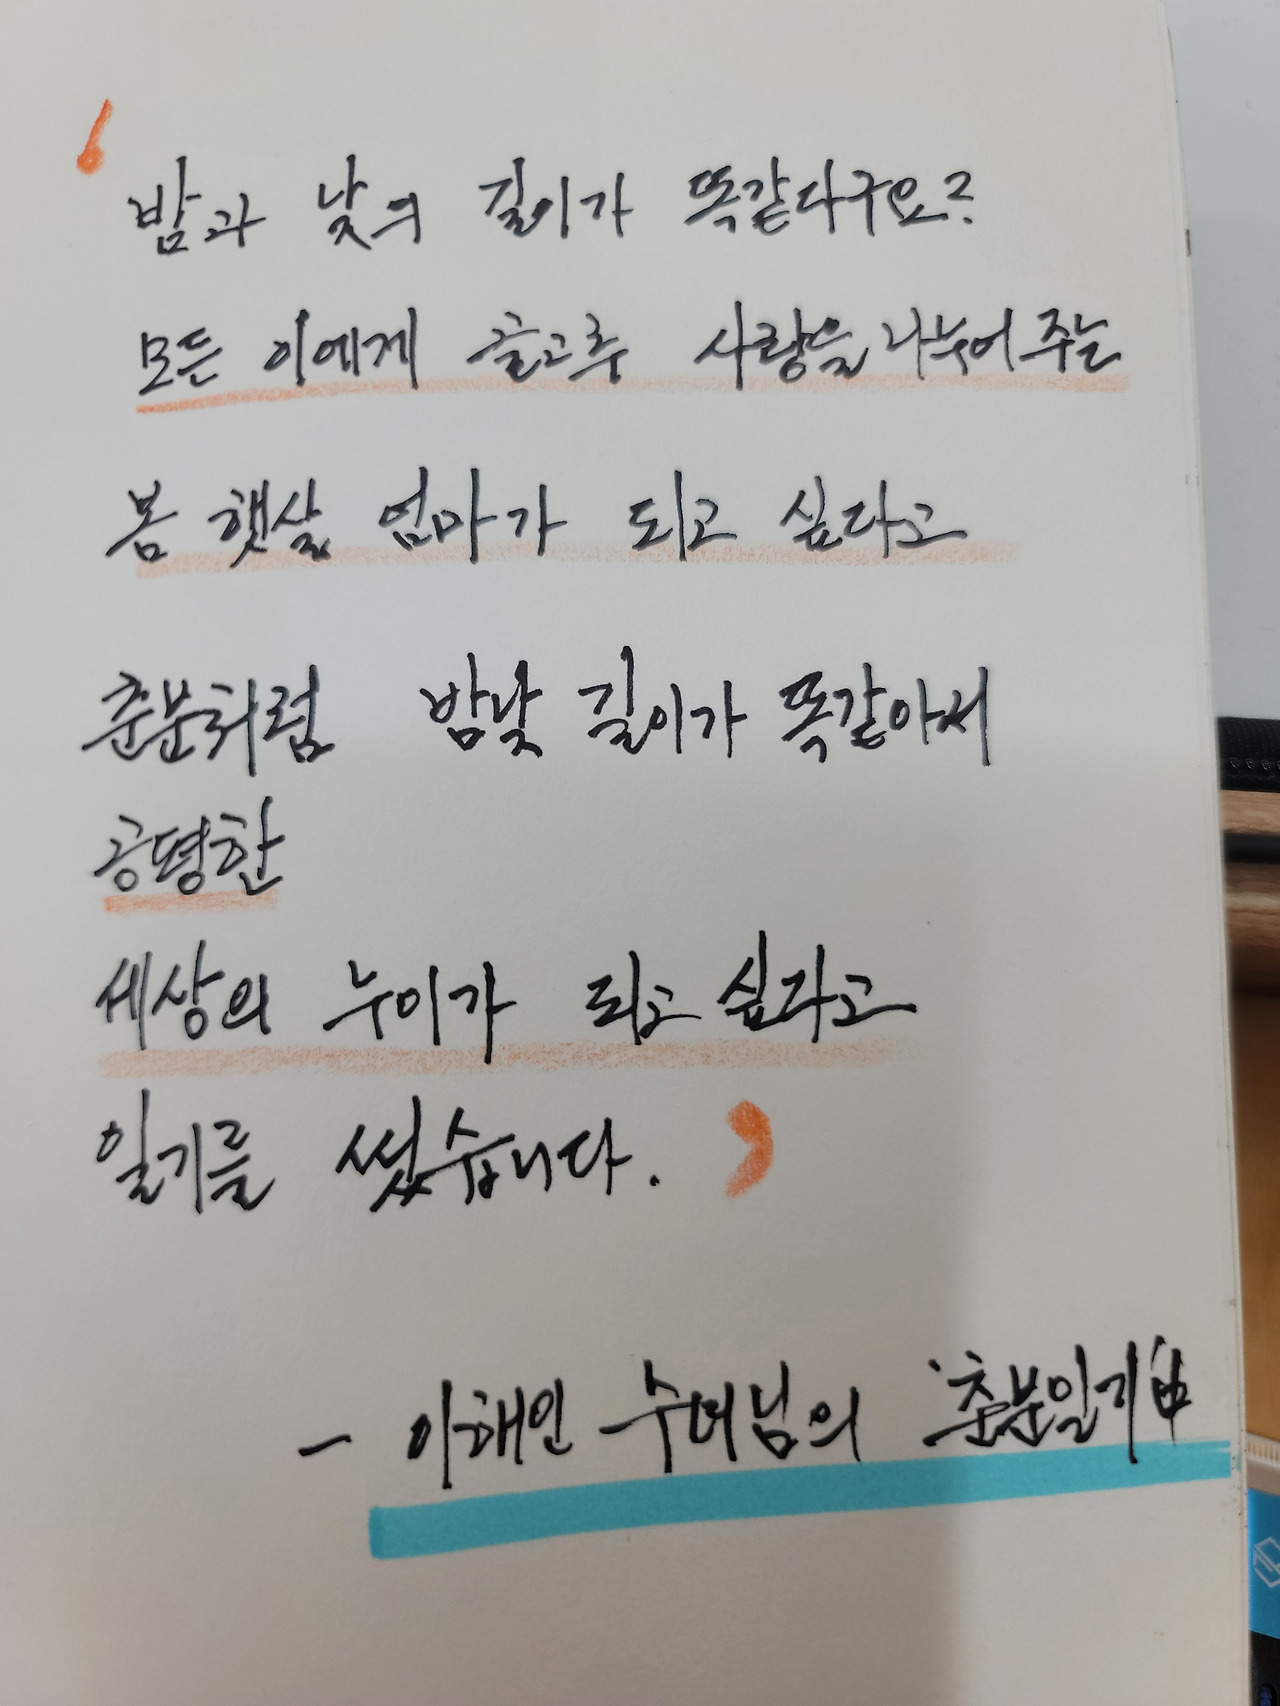 밤과 낮의 길이가 똑같다구요?
모든 이에게 골고루 사랑을 나누어 주는
봄 햇살 엄마가 되고 싶다고
춘분처럼 밤낮 길이가 똑같아서
공평한
세상의 누이가 되고 싶다고
일기를 썼습니다.
- 이해인 수녀님의 '춘분일기' 中